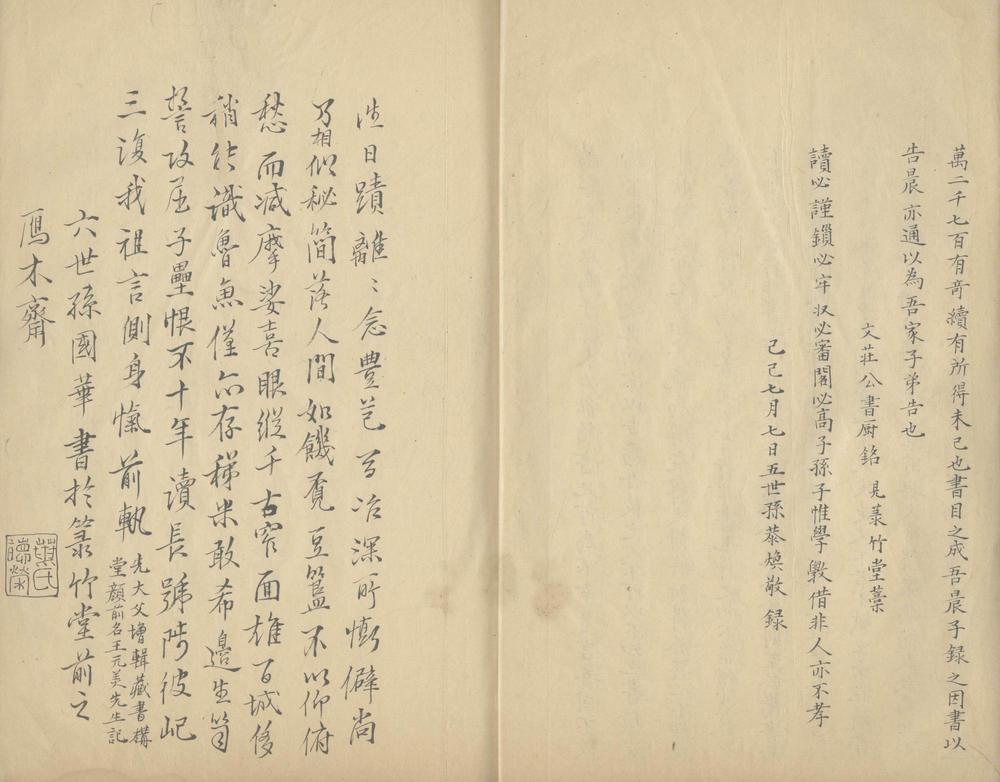 萬二千七百有奇續有所得未已也書目之成吾晨子録之因書以
告晨亦通以為吾家子弟告也
文莊公書厨銘 見菉竹堂藁
讀必謹鎖必牢收必審閣必高子孫子惟學斆借非人亦不孝
己巳七月七日五世孫恭煥敬録
日蹟離〻念豊芑 冶深所慚僻尚
乃相似秘簡落人間如饑覔豆簋不以仰俯
愁而減摩娑喜眼縱千古窄面雄百城侈
稍能識魯魚僅亦存稊米敢希邉生笥
誓攻屈子壘恨不十年讀長號陟彼屺
三復我祖言側身愾前軌 先大父增輯藏書構
堂顔前名王元美先生記
六世孫國華 書於菉竹堂前之
鴈木齋
葉氏